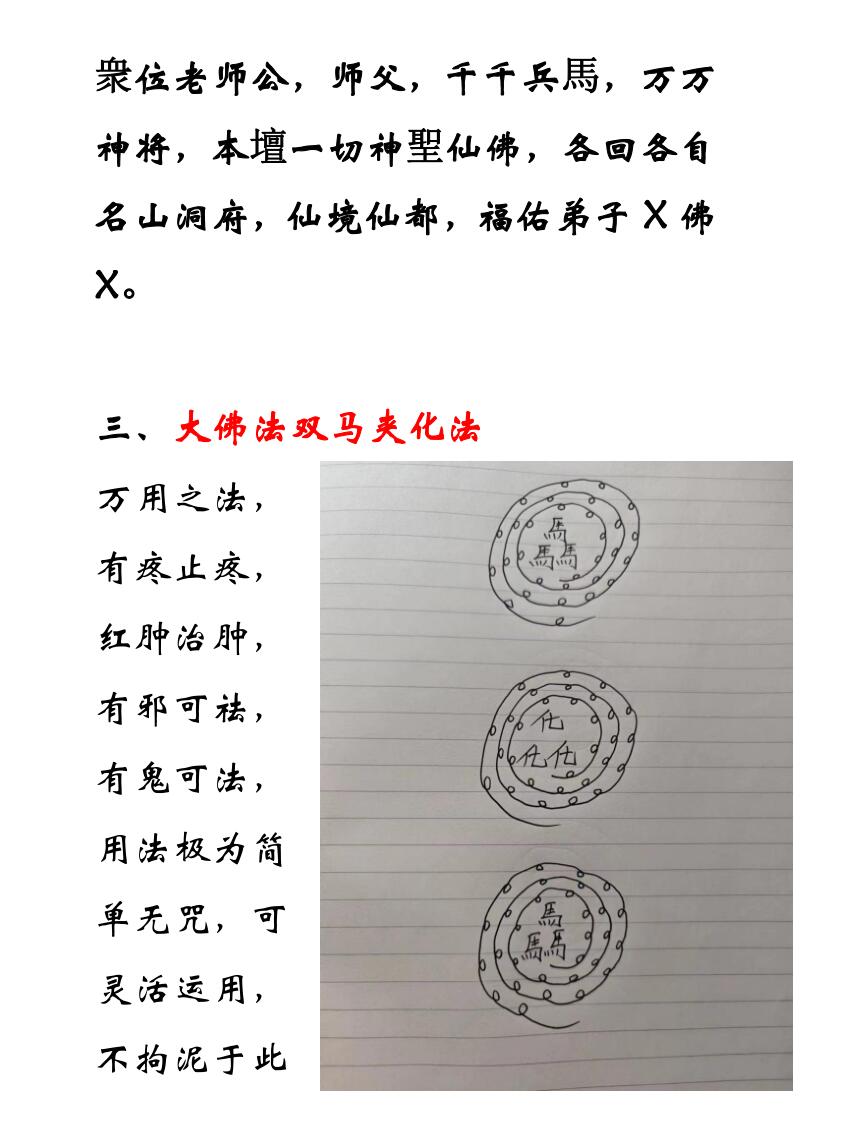 衆位老师公，师父，千千兵馬，万万
神将，本壇一切神聖仙佛，各回各自
名山洞府，仙境仙都，福佑弟子 X 佛
X。
三、大佛法双马夹化法
万用之法，
有疼止疼，
红肿治肿，
有邪可祛，
有鬼可法，
用法极为简
单无咒，可
灵活运用，
不拘泥于此
馬
馬馬
化
化化
馬
馬馬